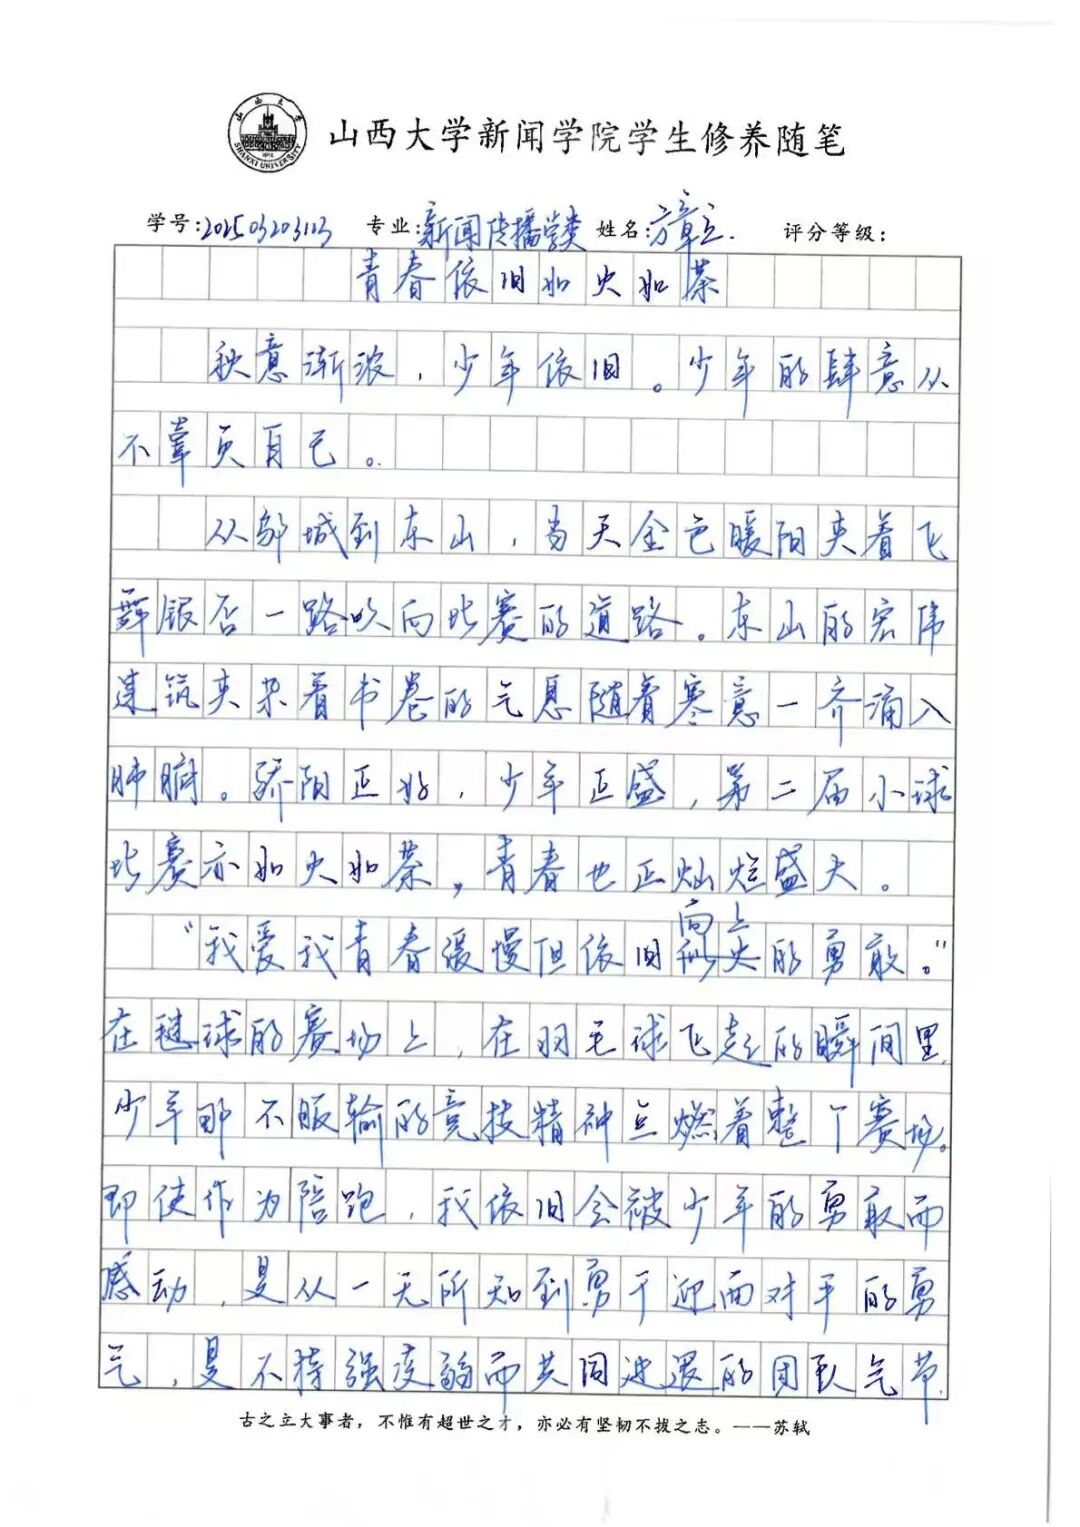 山西大学
SHANXI UNIVERSITY
1902
山西大学新闻学院学生修养随笔
学号:202503203113 专业:新闻传播学类 姓名:方章立. 评分等级:
青春依旧如火如荼
秋意渐浓,少年依旧。少年的肆意从
不辜负自己。
从邬城到东山,当天金色暖阳夹着飞
舞银杏一路吹向比赛的道路。东山的宏伟
建筑夹杂着书卷的气息随着寒意一齐涌入
肺腑。骄阳正好,少年正盛,第二届小球
比赛亦如火如荼,青春也正灿烂盛大。
“我爱我青春缓慢但依旧向上的勇敢。”
在毽球的赛场上,在羽毛球飞起的瞬间里,
少年那不服输的竞技精神点燃着整个赛场。
即使作为陪跑,我依旧会被少年的勇敢而
感动,是从一无所知到勇于迎面对手的勇
气,是不恃强凌弱而共同进退的团队气节.
古之立大事者,不惟有超世之才,亦必有坚韧不拔之志。——苏轼